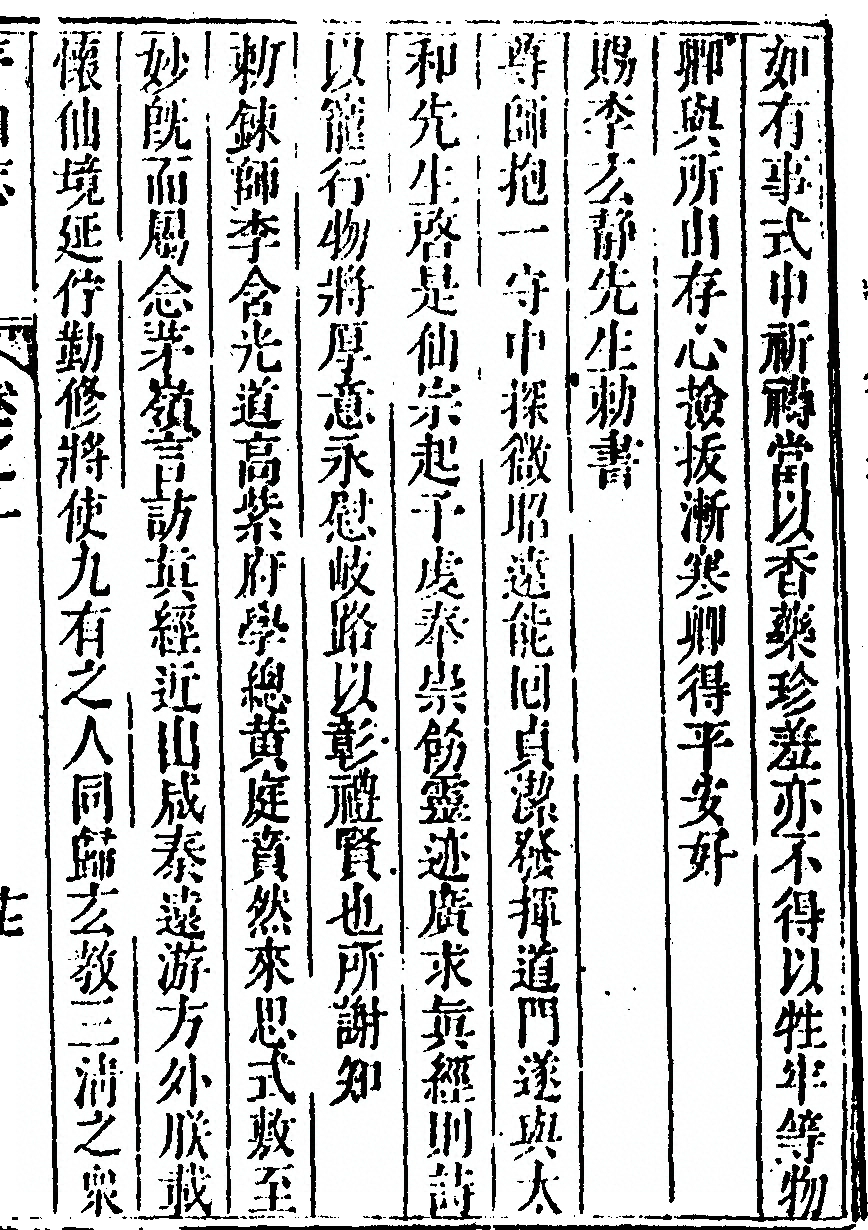 如有事式申祈禱當以香藥珍羞亦不得以牲牢等物
卿與所由存心撿扳漸寒卿得平安好
賜李玄靜先生勅書
尊師抱一守中探微昭遠能回貞潔發揮道門遂與太
和先生啓是仙宗起予虔奉崇飭靈迹廣求眞經則詩
以寵行物將厚意永慰岐路以彰禮賢也所謝知
勅鍊師李含光道高紫府學總黄庭賁然來思式敷至
妙旣而屬念茅嶺言訪眞經近出咸秦遠游方外朕載
懷仙境延佇勤修將使九有之人同歸玄教三淸之衆